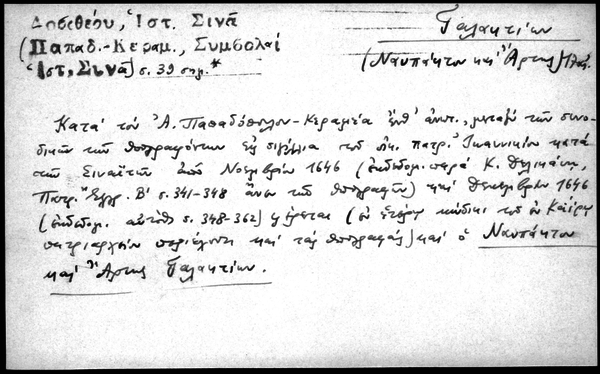 Δοσιθέου, Ἱστ. Σινᾶ
(Παπαδ.-Κεραμ., Συμβολαί
Ἱστ. Σινᾶ) σ. 39 σημ.*
Γαλακτίων
(Ναυπάκτου καὶ Ἄρτης)
Κατὰ τὸν Ἀ. Παπαδόπουλον-Κεραμέα ἔνθ' ἀνωτ., μεταξὺ τῶν συνο-
δικῶν τῶν ὑπογραψάντων εἰς σιγίλλια τοῦ οἰκ. πατρ. Ἰωαννικίου κατὰ
τῶν Σιναϊτῶν ἀπὸ Νοεμβρίου 1646 (ἐκδεδομ. παρὰ Κ. Δελικάνη,
Πατρ. Ἔγγρ. Β' σ. 341-348 ἄνευ τῶν ὑπογραφῶν) καὶ Δεκεμβρίου 1646
(ἐκδεδομ. αὐτόθι σ. 348-362) φέρεται (ἐν ἑτέρῳ κώδικι τοῦ ἐν Καΐρῳ
πατριαρχείου περιέχοντι καὶ τὰς ὑπογραφάς) καὶ ὁ Ναυπάκτου
καὶ Ἄρτης Γαλακτίων.